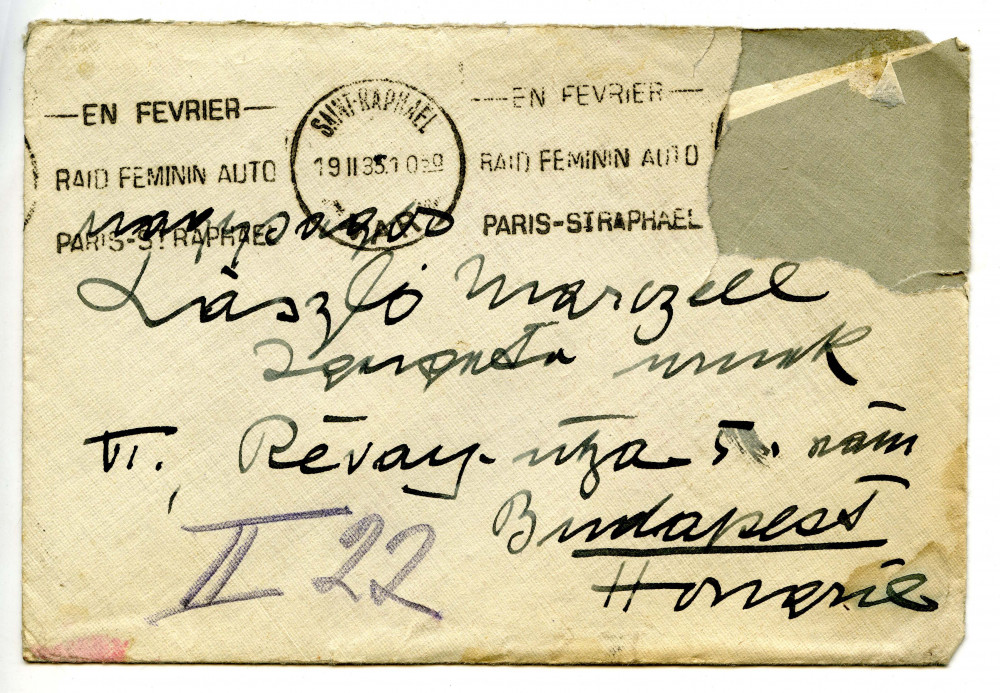 —EN FEVRIER—
RAID FEMININ AUTO
PARIS-ST RAPHAEL
SAINT-RAPHAEL
19 II 35
—EN FEVRIER—
RAID FEMININ AUTO
PARIS-ST RAPHAEL
László Marczell
Igazgató urnak
VI. Révay-utza 5. szám
Budapest
Hongrie
II 22